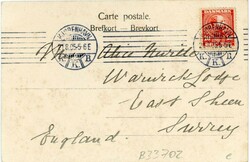 Carte postale.
Brefkort — Brevkort.
KJØBENHAVN
DANMARK
Miss Alice
Warwick Lodge
East Sheen
Surrey
England
B33702